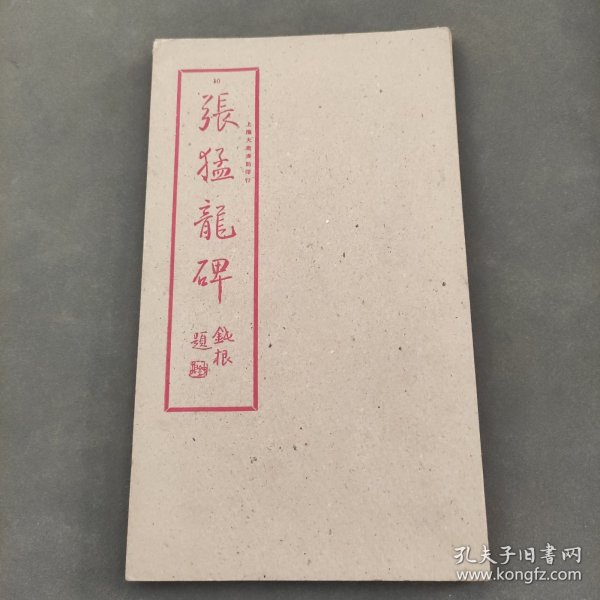 40
張猛龍碑
上海大衆書局印行
鈍根
題
孔夫子旧书网
www.kongfz.com